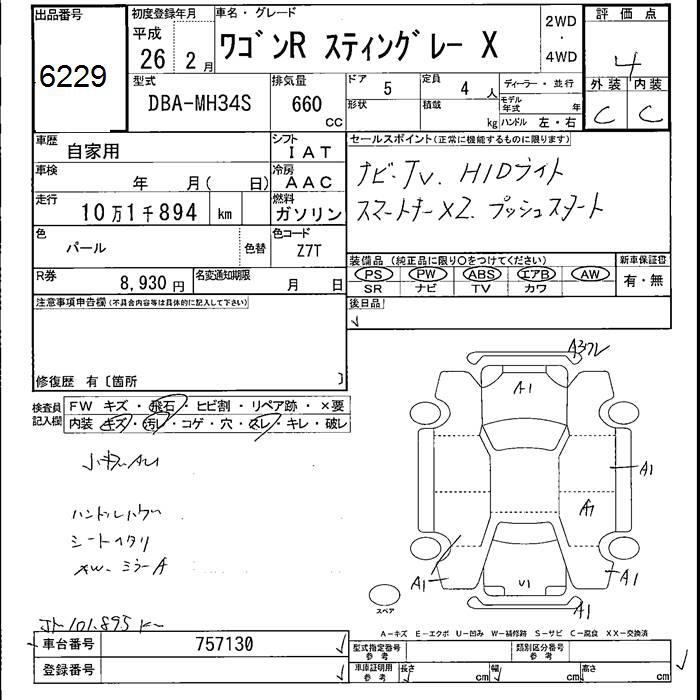 出品番号
6229
初度登録年月
平成
26 2月
車名・グレード
ワゴンR スティングレー X
2WD
・
4WD
評価点
4
外装 内装
C C
型式
DBA-MH34S
排気量
660
CC
ドア
5
定員
4 人
ディーラー・並行
形状
積載
kg
モデル年式 年
ハンドル 左・右
車歴
自家用
シフト
IAT
車検
年 月( 日)
冷房
AAC
走行
10万1千894 km
燃料
ガソリン
色
パール
色替
色コード
Z7T
R券
8,930円
名変通知期限
月 日
セールスポイント(正常に機能するものに限ります)
ナビ・TV. HIDライト
スマートキーX2. プッシュスタート
装備品 (純正品に限り○をつけてください)
PS PW ABS エアB AW
SR ナビ TV カワ
新車保証書
有・無
注意事項申告欄(不具合内容等は具体的に記入して下さい)
後日品
修復歴 有〔箇所 〕
検査員
記入欄
FW キズ・飛石・ヒビ割・リペア跡・×要
内装 キズ・汚レ・コゲ・穴・スレ・キレ・破レ
A1
A1
A1
A1
U1
A1
A1
スペア
A-キズ E-エクボ U-凹み W-補修跡 S-サビ C-腐食 XX-交換済
車台番号
757130
登録番号
型式指定番号
参考
類別区分番号
参考
車庫証明用
参考
長さ cm
幅 cm
高さ cm